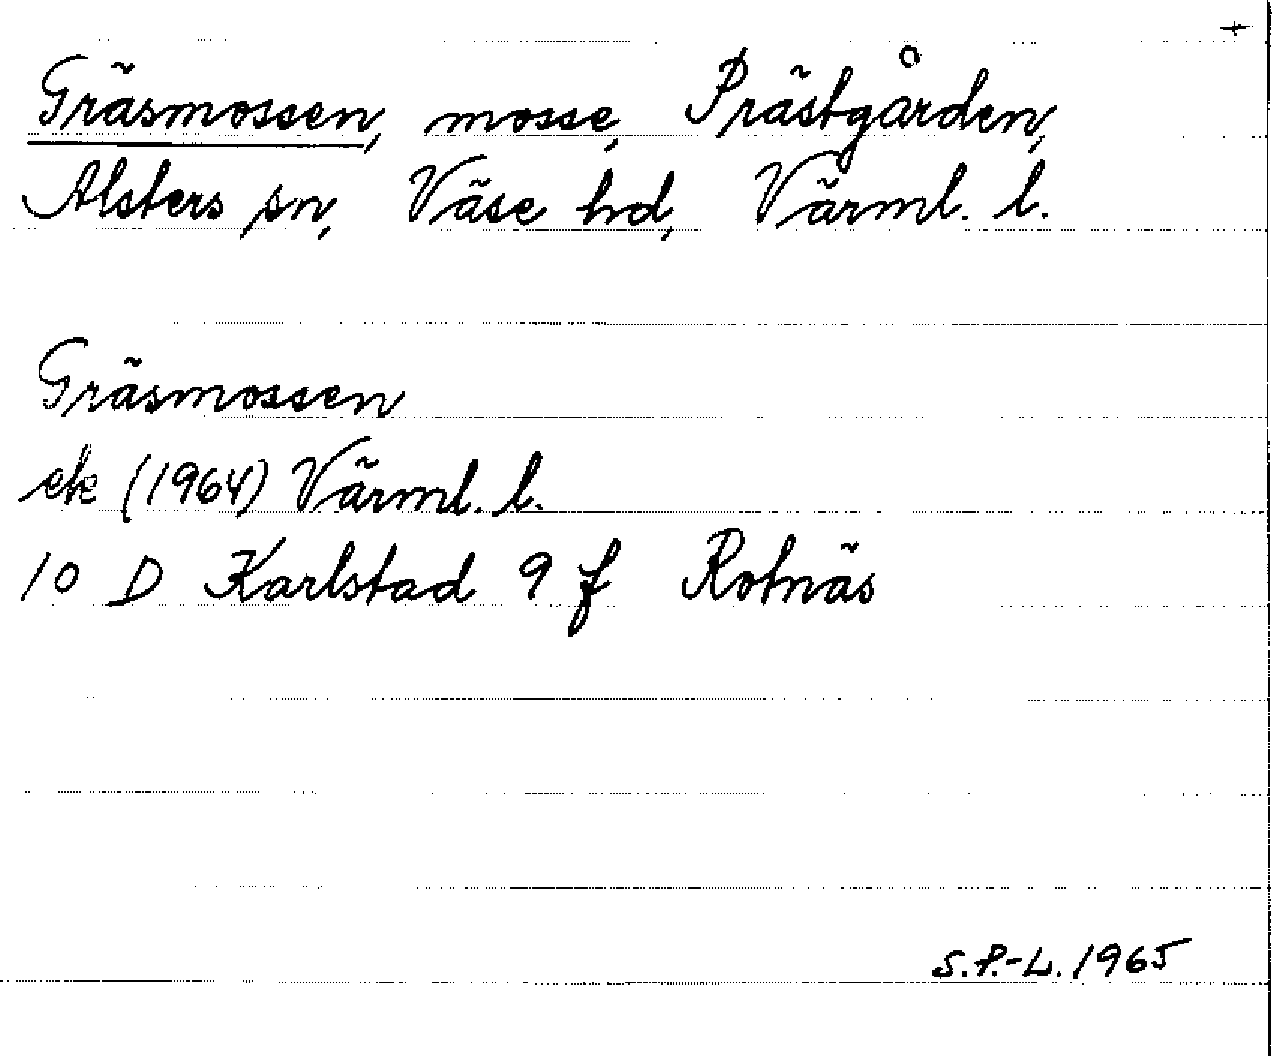 +
Gräsmossen, mosse, Prästgården,
Alsters sn, Väse hd, Värml. l.
Gräsmossen
ek (1964) Värml. l.
10 D Karlstad 9 f Rotnäs
S.P.-L. 1965